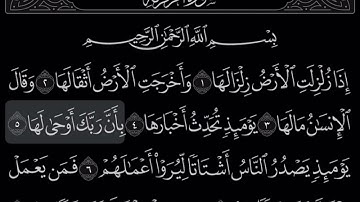 بِسْمِ ٱللَّهِ ٱلرَّحْمَٰنِ ٱلرَّحِيمِ
إِذَا زُلْزِلَتِ ٱلْأَرْضُ زِلْزَالَهَا ١ وَأَخْرَجَتِ ٱلْأَرْضُ أَثْقَالَهَا ٢ وَقَالَ
ٱلْإِنسَٰنُ مَا لَهَا ٣ يَوْمَئِذٍ تُحَدِّثُ أَخْبَارَهَا ٤ بِأَنَّ رَبَّكَ أَوْحَىٰ لَهَا ٥
يَوْمَئِذٍ يَصْدُرُ ٱلنَّاسُ أَشْتَاتًا لِّيُرَوْا۟ أَعْمَٰلَهُمْ ٦ فَمَن يَعْمَلْ